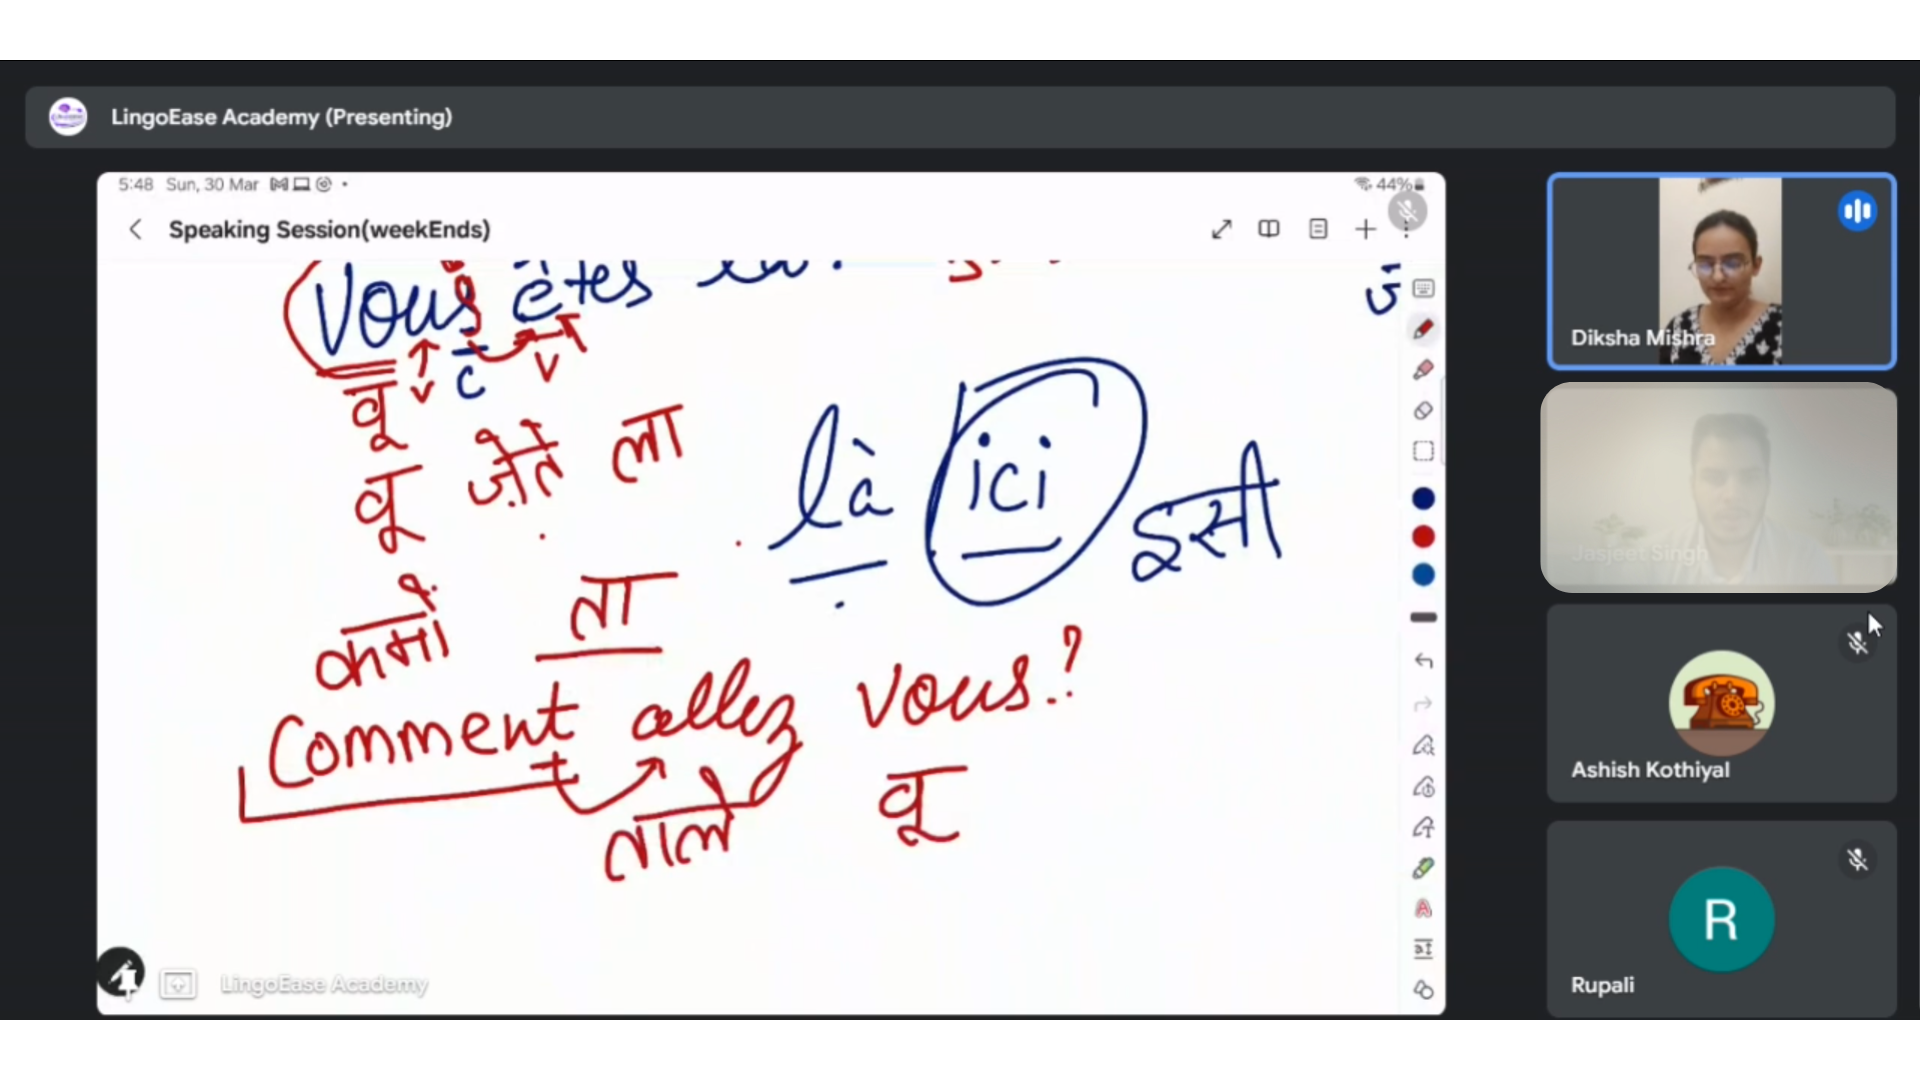 LingoEase Academy (Presenting)
5:48 Sun, 30 Mar 44%
Speaking Session(weekEnds)
Vous êtes là
v c v
वू
वू ज़ेते ला
là ici इसी
कमों ता
Comment allez vous.?
t
ताले वू
LingoEase Academy
Diksha Mishra
Jasjeet Singh
Ashish Kothiyal
R
Rupali